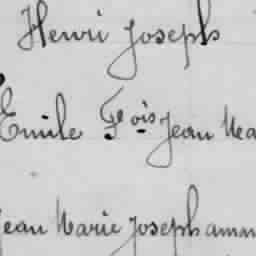 Henri Joseph
Emile Fçois Jean Ma
Jean Marie Joseph amm